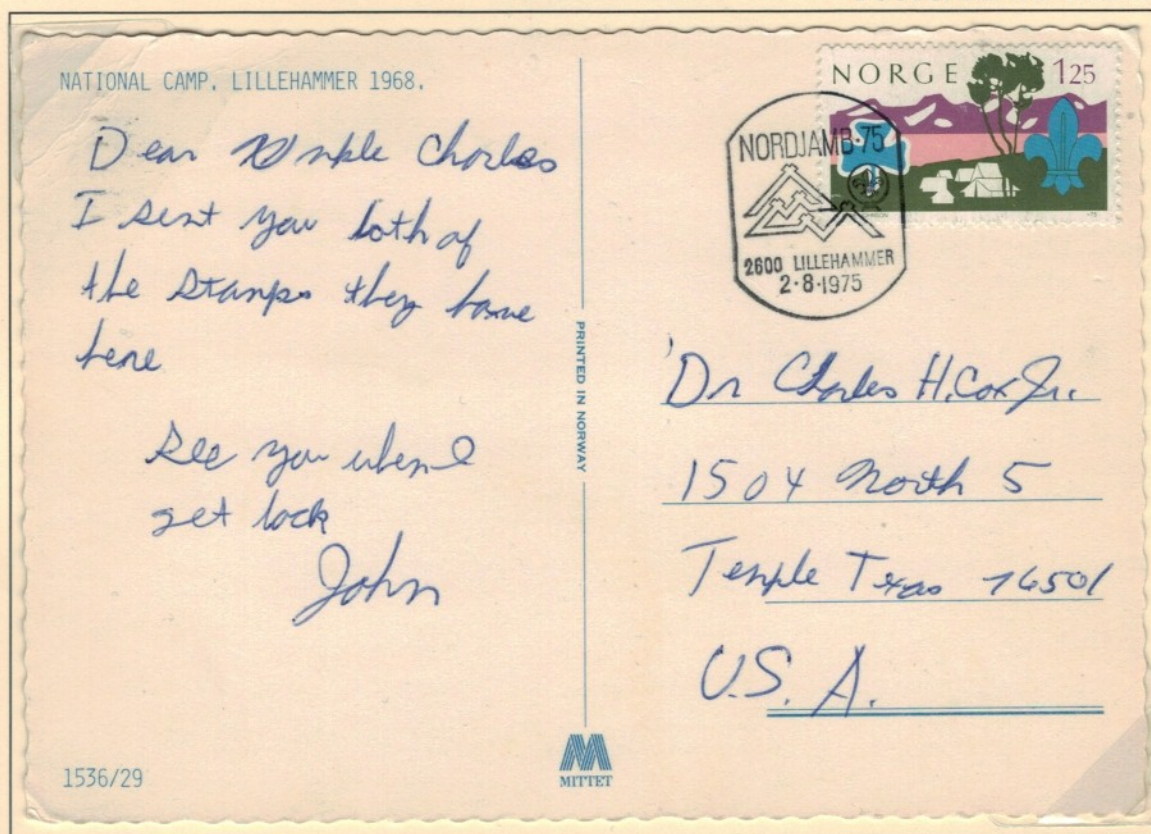 NATIONAL CAMP. LILLEHAMMER 1968.
Dear Charles
I sent you both of
the stamps they have
here
See you when I
get back
John
1536/29
PRINTED IN NORWAY
MITTET
NORGE 125
NORDJAMB·75
2600 LILLEHAMMER
2·8·1975
Dr Charles H. Cox Jr.
1504 North 5
Temple Texas 76501
U.S.A.